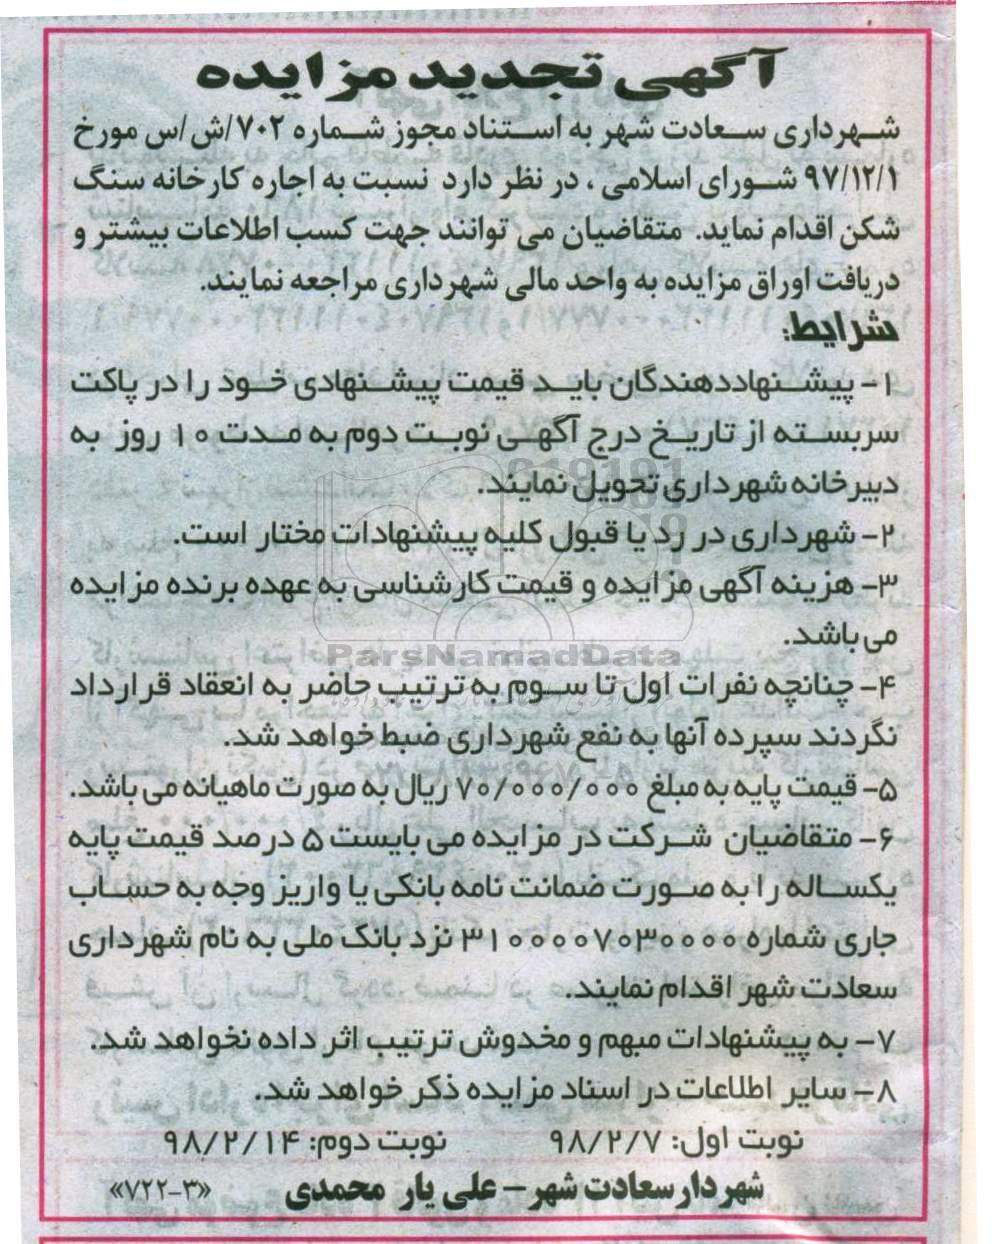 آگهی تجدید مزایده
شهرداری سعادت شهر به استناد مجوز شماره ۷۰۲/ش/س مورخ
۹۷/۱۲/۱ شورای اسلامی ، در نظر دارد نسبت به اجاره کارخانه سنگ
شکن اقدام نماید. متقاضیان می توانند جهت کسب اطلاعات بیشتر و
دریافت اوراق مزایده به واحد مالی شهرداری مراجعه نمایند.
شرایط:
۱- پیشنهاددهندگان باید قیمت پیشنهادی خود را در پاکت
سربسته از تاریخ درج آگهی نوبت دوم به مدت ۱۰ روز به
دبیرخانه شهرداری تحویل نمایند.
۲- شهرداری در رد یا قبول کلیه پیشنهادات مختار است.
۳- هزینه آگهی مزایده و قیمت کارشناسی به عهده برنده مزایده
می باشد.
ParsNamadData
۴- چنانچه نفرات اول تا سوم به ترتیب حاضر به انعقاد قرارداد
نگردند سپرده آنها به نفع شهرداری ضبط خواهد شد.
۵- قیمت پایه به مبلغ ۷۰/۰۰۰/۰۰۰ ریال به صورت ماهیانه می باشد.
۶- متقاضیان شرکت در مزایده می بایست ۵ درصد قیمت پایه
یکساله را به صورت ضمانت نامه بانکی یا واریز وجه به حساب
جاری شماره ۳۱۰۰۰۰۷۰۳۰۰۰۰ نزد بانک ملی به نام شهرداری
سعادت شهر اقدام نمایند.
۷- به پیشنهادات مبهم و مخدوش ترتیب اثر داده نخواهد شد.
۸- سایر اطلاعات در اسناد مزایده ذکر خواهد شد.
نوبت اول: ۹۸/۲/۷ نوبت دوم: ۹۸/۲/۱۴
شهردار سعادت شهر - علی یار محمدی «۷۲۲-۳»